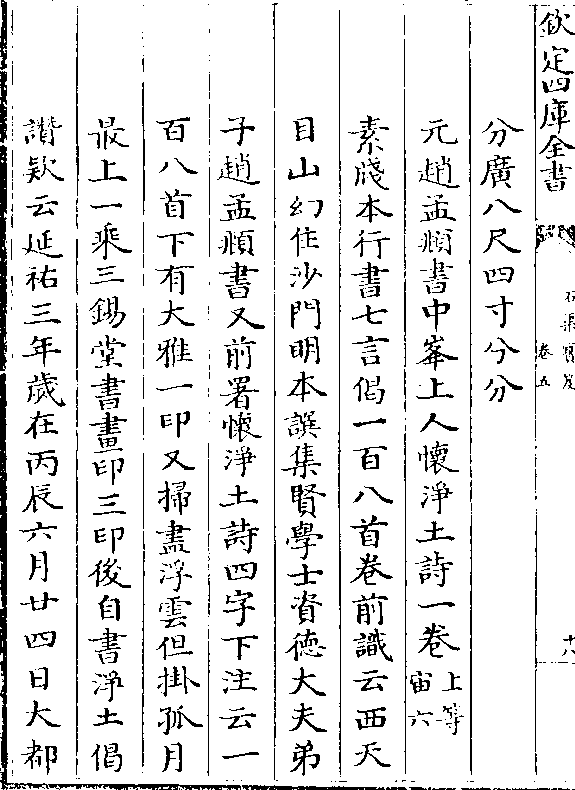 欽定四庫全書
石渠寳笈
卷五
十八
分廣八尺四寸兮分
元趙孟頫書中峯上人懷淨土詩一卷 上等
宙六
素牋本行書七言偈一百八首卷前識云西天
目山幻住沙門明本譔集賢學士資德大夫弟
子趙孟頫書又前署懷淨土詩四字下注云一
百八首下有大雅一印又掃盡浮雲但掛孤月
最上一乘三錫堂書畫印三印後自書淨土偈
讚欵云延祐三年歲在丙辰六月廿四日大都